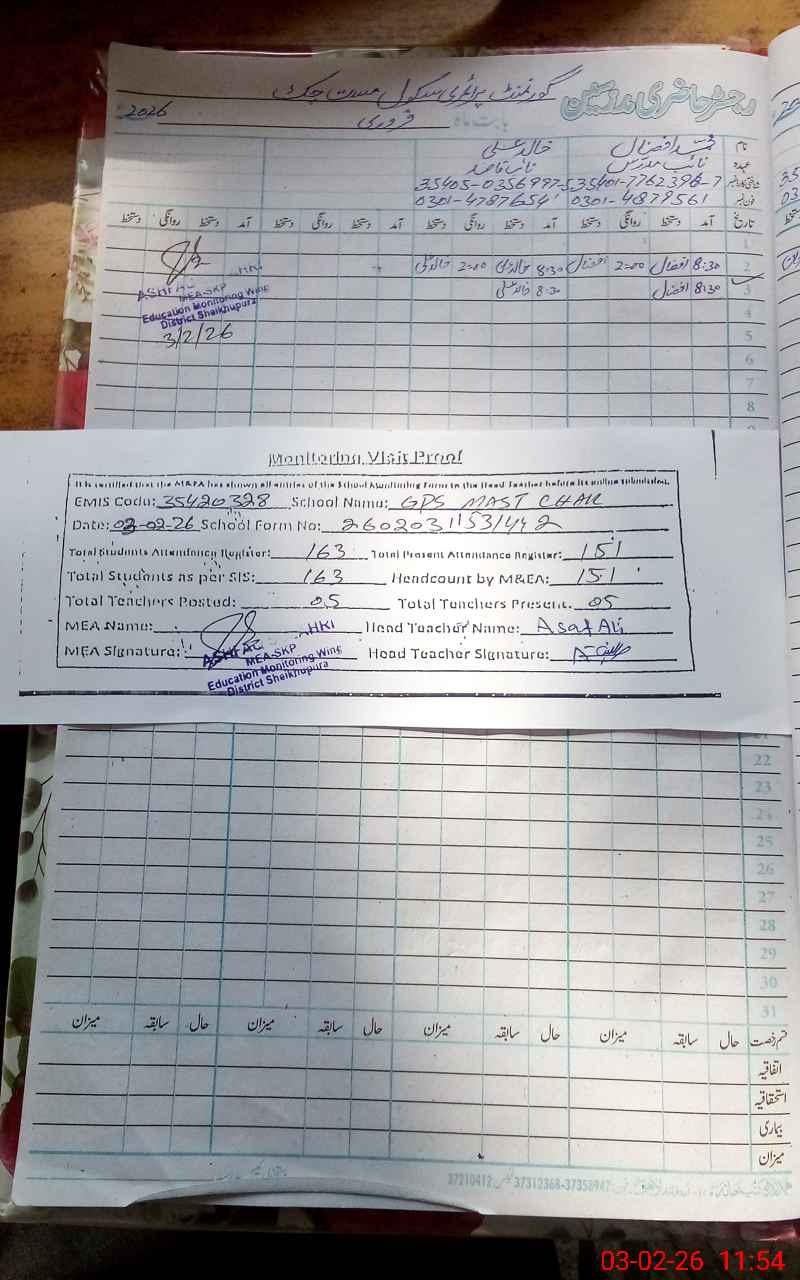 رجسٹر حاضری مدرسین گورنمنٹ پرائمری سکول مست چک
بابت ماہ فروری 2026
نام محمد افضال خالد علی
عہدہ نائب مدرس نائب قاصد
35401-7762396-7 35405-0356997-5
فون نمبر 0301-4879561 0301-4787654
تاریخ آمد دستخط روانگی دستخط آمد دستخط روانگی دستخط آمد دستخط روانگی دستخط آمد دستخط روانگی دستخط
1
2 8:30 افضال 2:00 افضال 8:30 خالد علی 2:00 خالد علی
3 8:30 افضال 8:30 خالد علی
4
5
6
7
8
MEA-SKP
Education Monitoring Wing
District Sheikhupura
3/2/26
Monitoring Visit Proof
It is certified that the M&EA has shown all entries of the School Monitoring Form to the Head Teacher before its online submission.
EMIS Code: 35420328 School Name: GPS MAST CHAK
Date: 03-02-26 School Form No: 26020311531442
Total Students Attendance Register: 163 Total Present Attendance Register: 151
Total Students as per SIS: 163 Headcount by M&EA: 151
Total Teachers Posted: 05 Total Teachers Present. 05
MEA Name: Head Teacher Name: Asaf Ali
MEA Signature: Head Teacher Signature:
MEA-SKP
Education Monitoring Wing
District Sheikhupura
21
22
23
24
25
26
27
28
29
30
31
قسم رخصت حال سابقہ میزان حال سابقہ میزان حال سابقہ میزان حال سابقہ میزان
اتفاقیہ
استحقاقیہ
بیماری
میزان
37210412 37312368-37358947
03-02-26 11:54